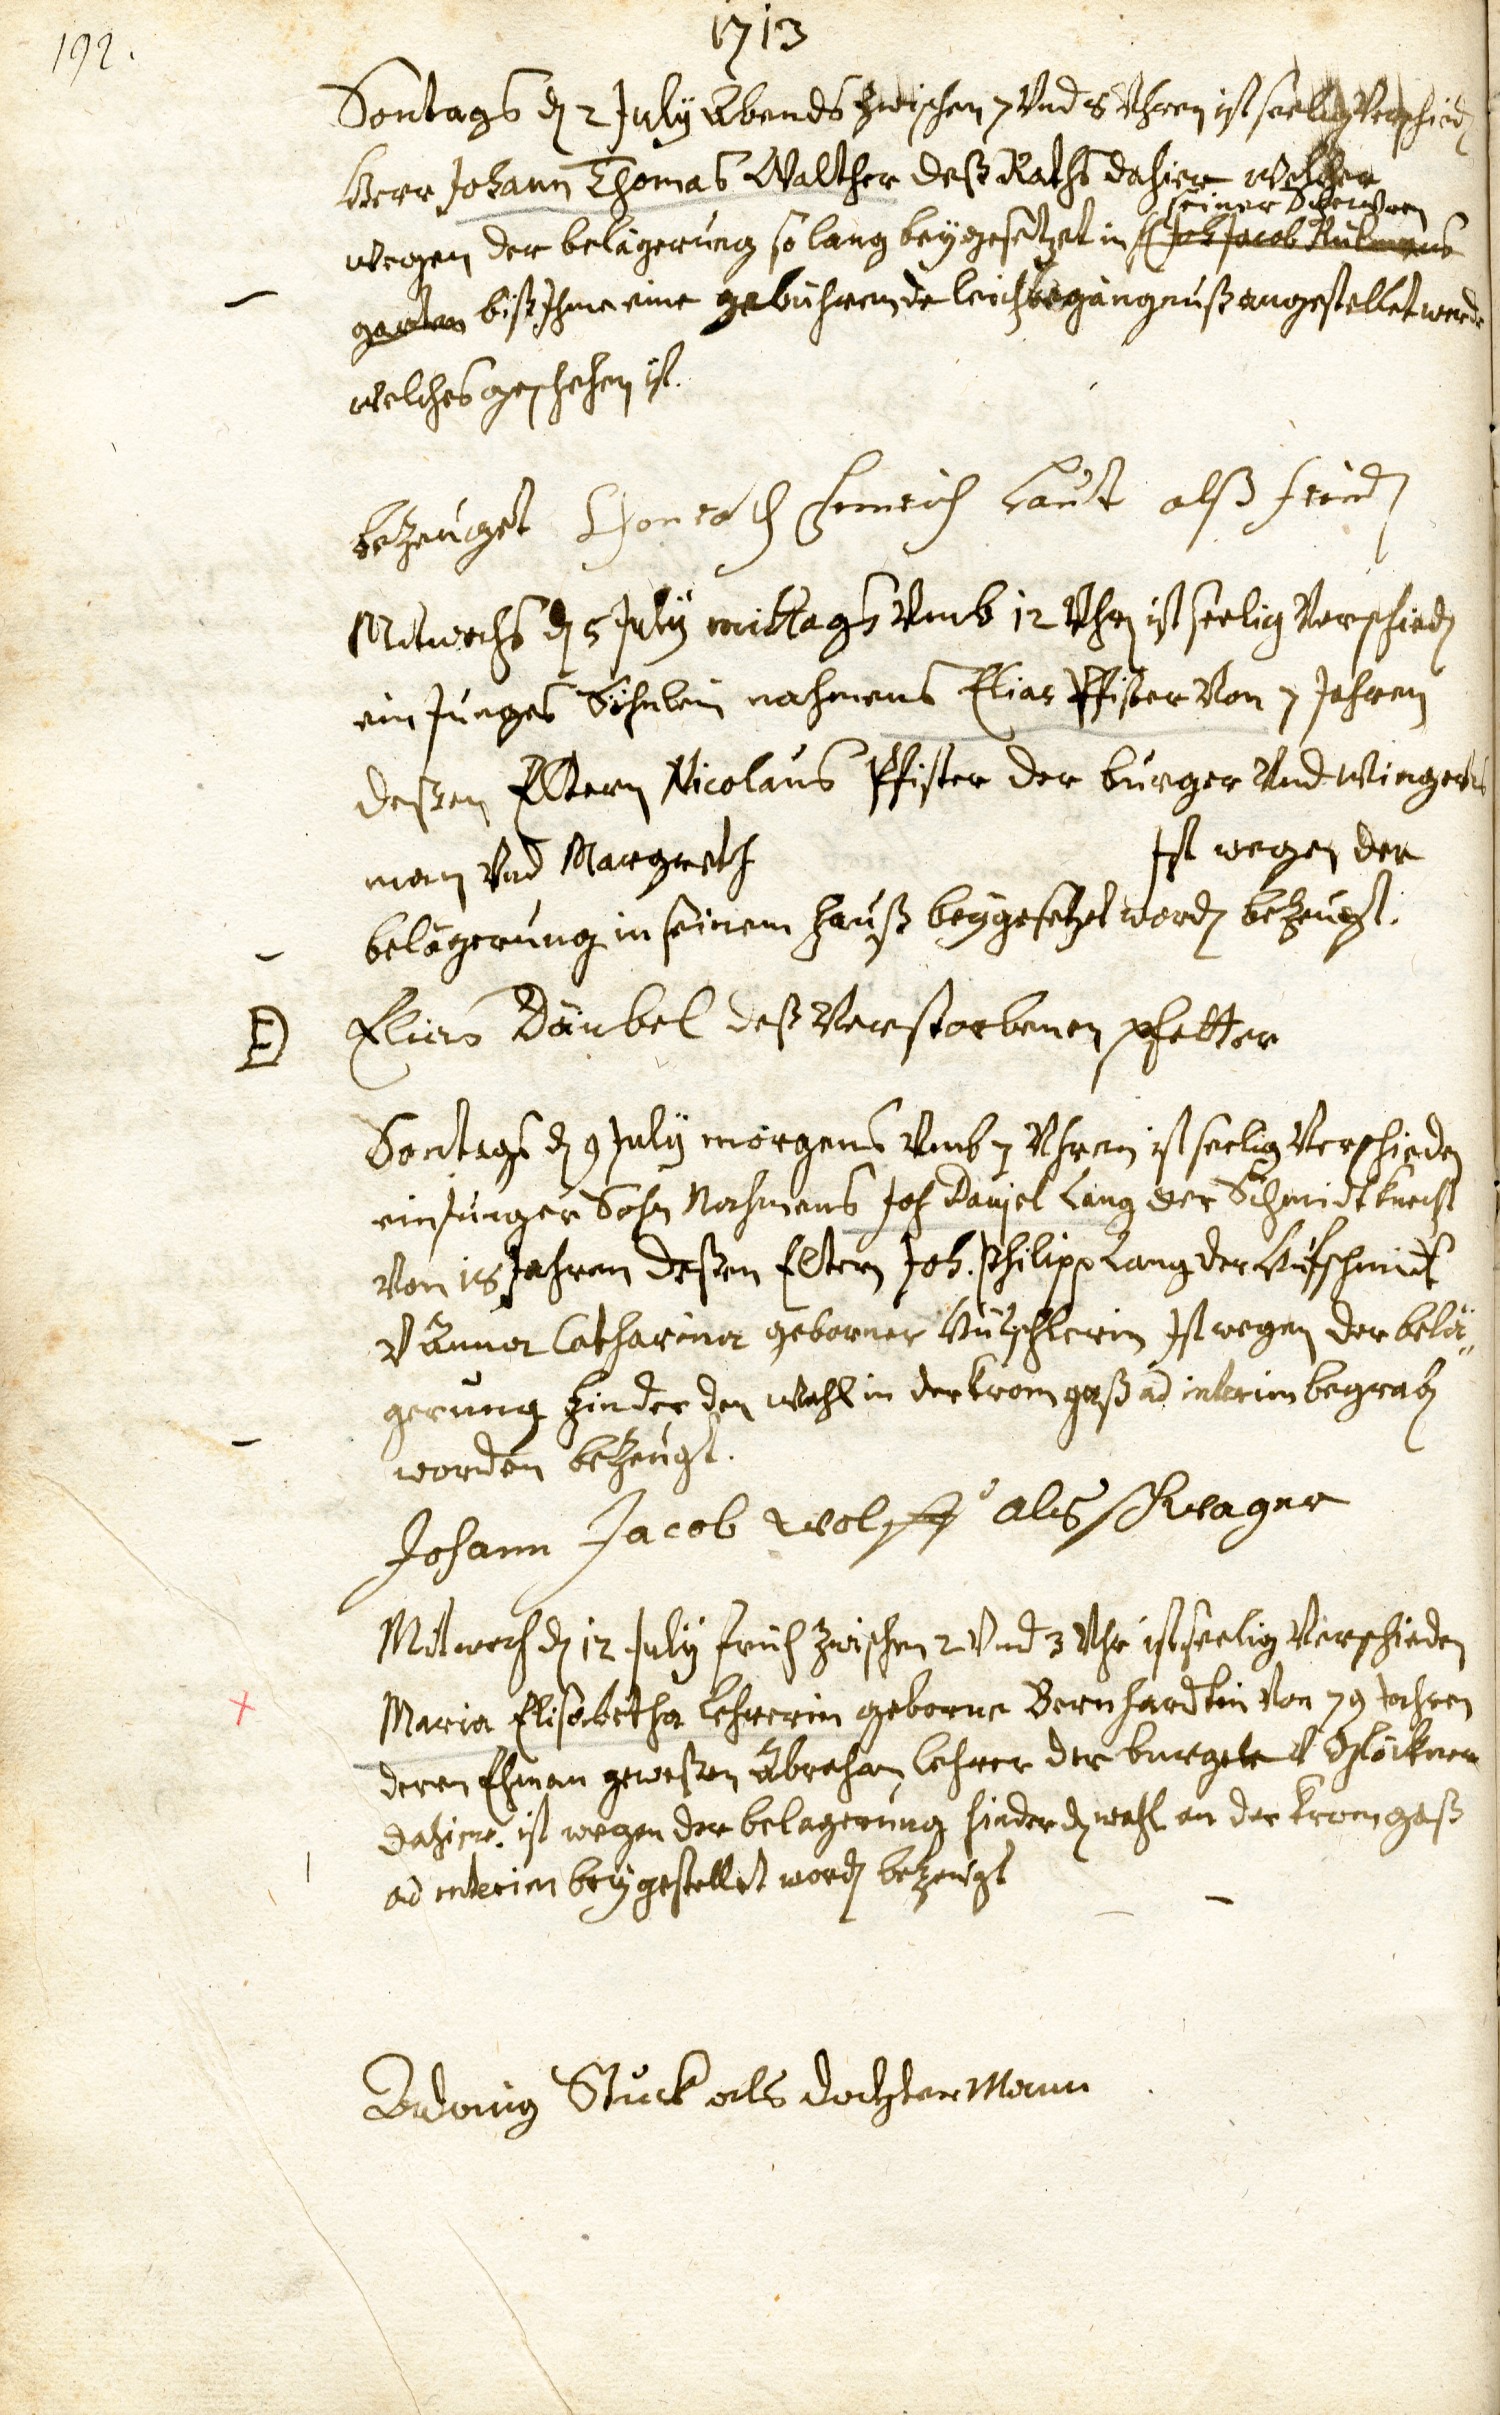 192.
1713
Sontags d 2 July Abends zwischen 7 Vnd 8 Vhren ist seelig Verschied
Herr Johann Thomas Walther deß Raths dahier welcher
seiner Schewren
wegen der belägerung so lang beygesetzet in Joh Jacob
garten biß Ihme eine gebührende leichbegängnuß angestellet werde
welches geschehen ist.
bezeuget Henrich Laut alß freind
Mitwochs d 5 July mittags Vmb 12 Vhr ist seelig Verschied
ein Junges Söhnlein nahmens Elias Pfister Von 7 Jahren
deßen Eltern Nicolaus Pfister der burger Vnd Wingerts
man Vnd Margreth Ist wegen der
belägerung in seinem hauß beygesetzet word bezeugt.
ED Elias Däubel deß Verstorbenen pfetter
Sontags d 9 July morgens Vmb 7 Vhren ist seelig Verschieden
ein Junger Sohn Nahmens Joh Daniel Lang der Schmidtknecht
Von 18 Jahren deßen Eltern Joh. Philipp Lang der Hufschmidt
V Anna Catharina geborner Ist wegen der belä-
gerung hinder den Wahl in der kromgaß ad interim begrab
worden bezeugt.
Johann Jacob Wolff als schwager
Mitwoch d 12 July früh zwischen 2 Vnd 3 Vhr ist seelig Verschieden
Maria Elisabetha Lehrerin geborne Bernhardtin Von 79 Jahren
deren Ehman geweßen Abraham Lehrer der burger V Glöckner
dahier. ist wegen der belagerung hinder d wahl an der kromgaß
ad interim beygestellet word bezeugt
Ludwig Stuck als dochterMann